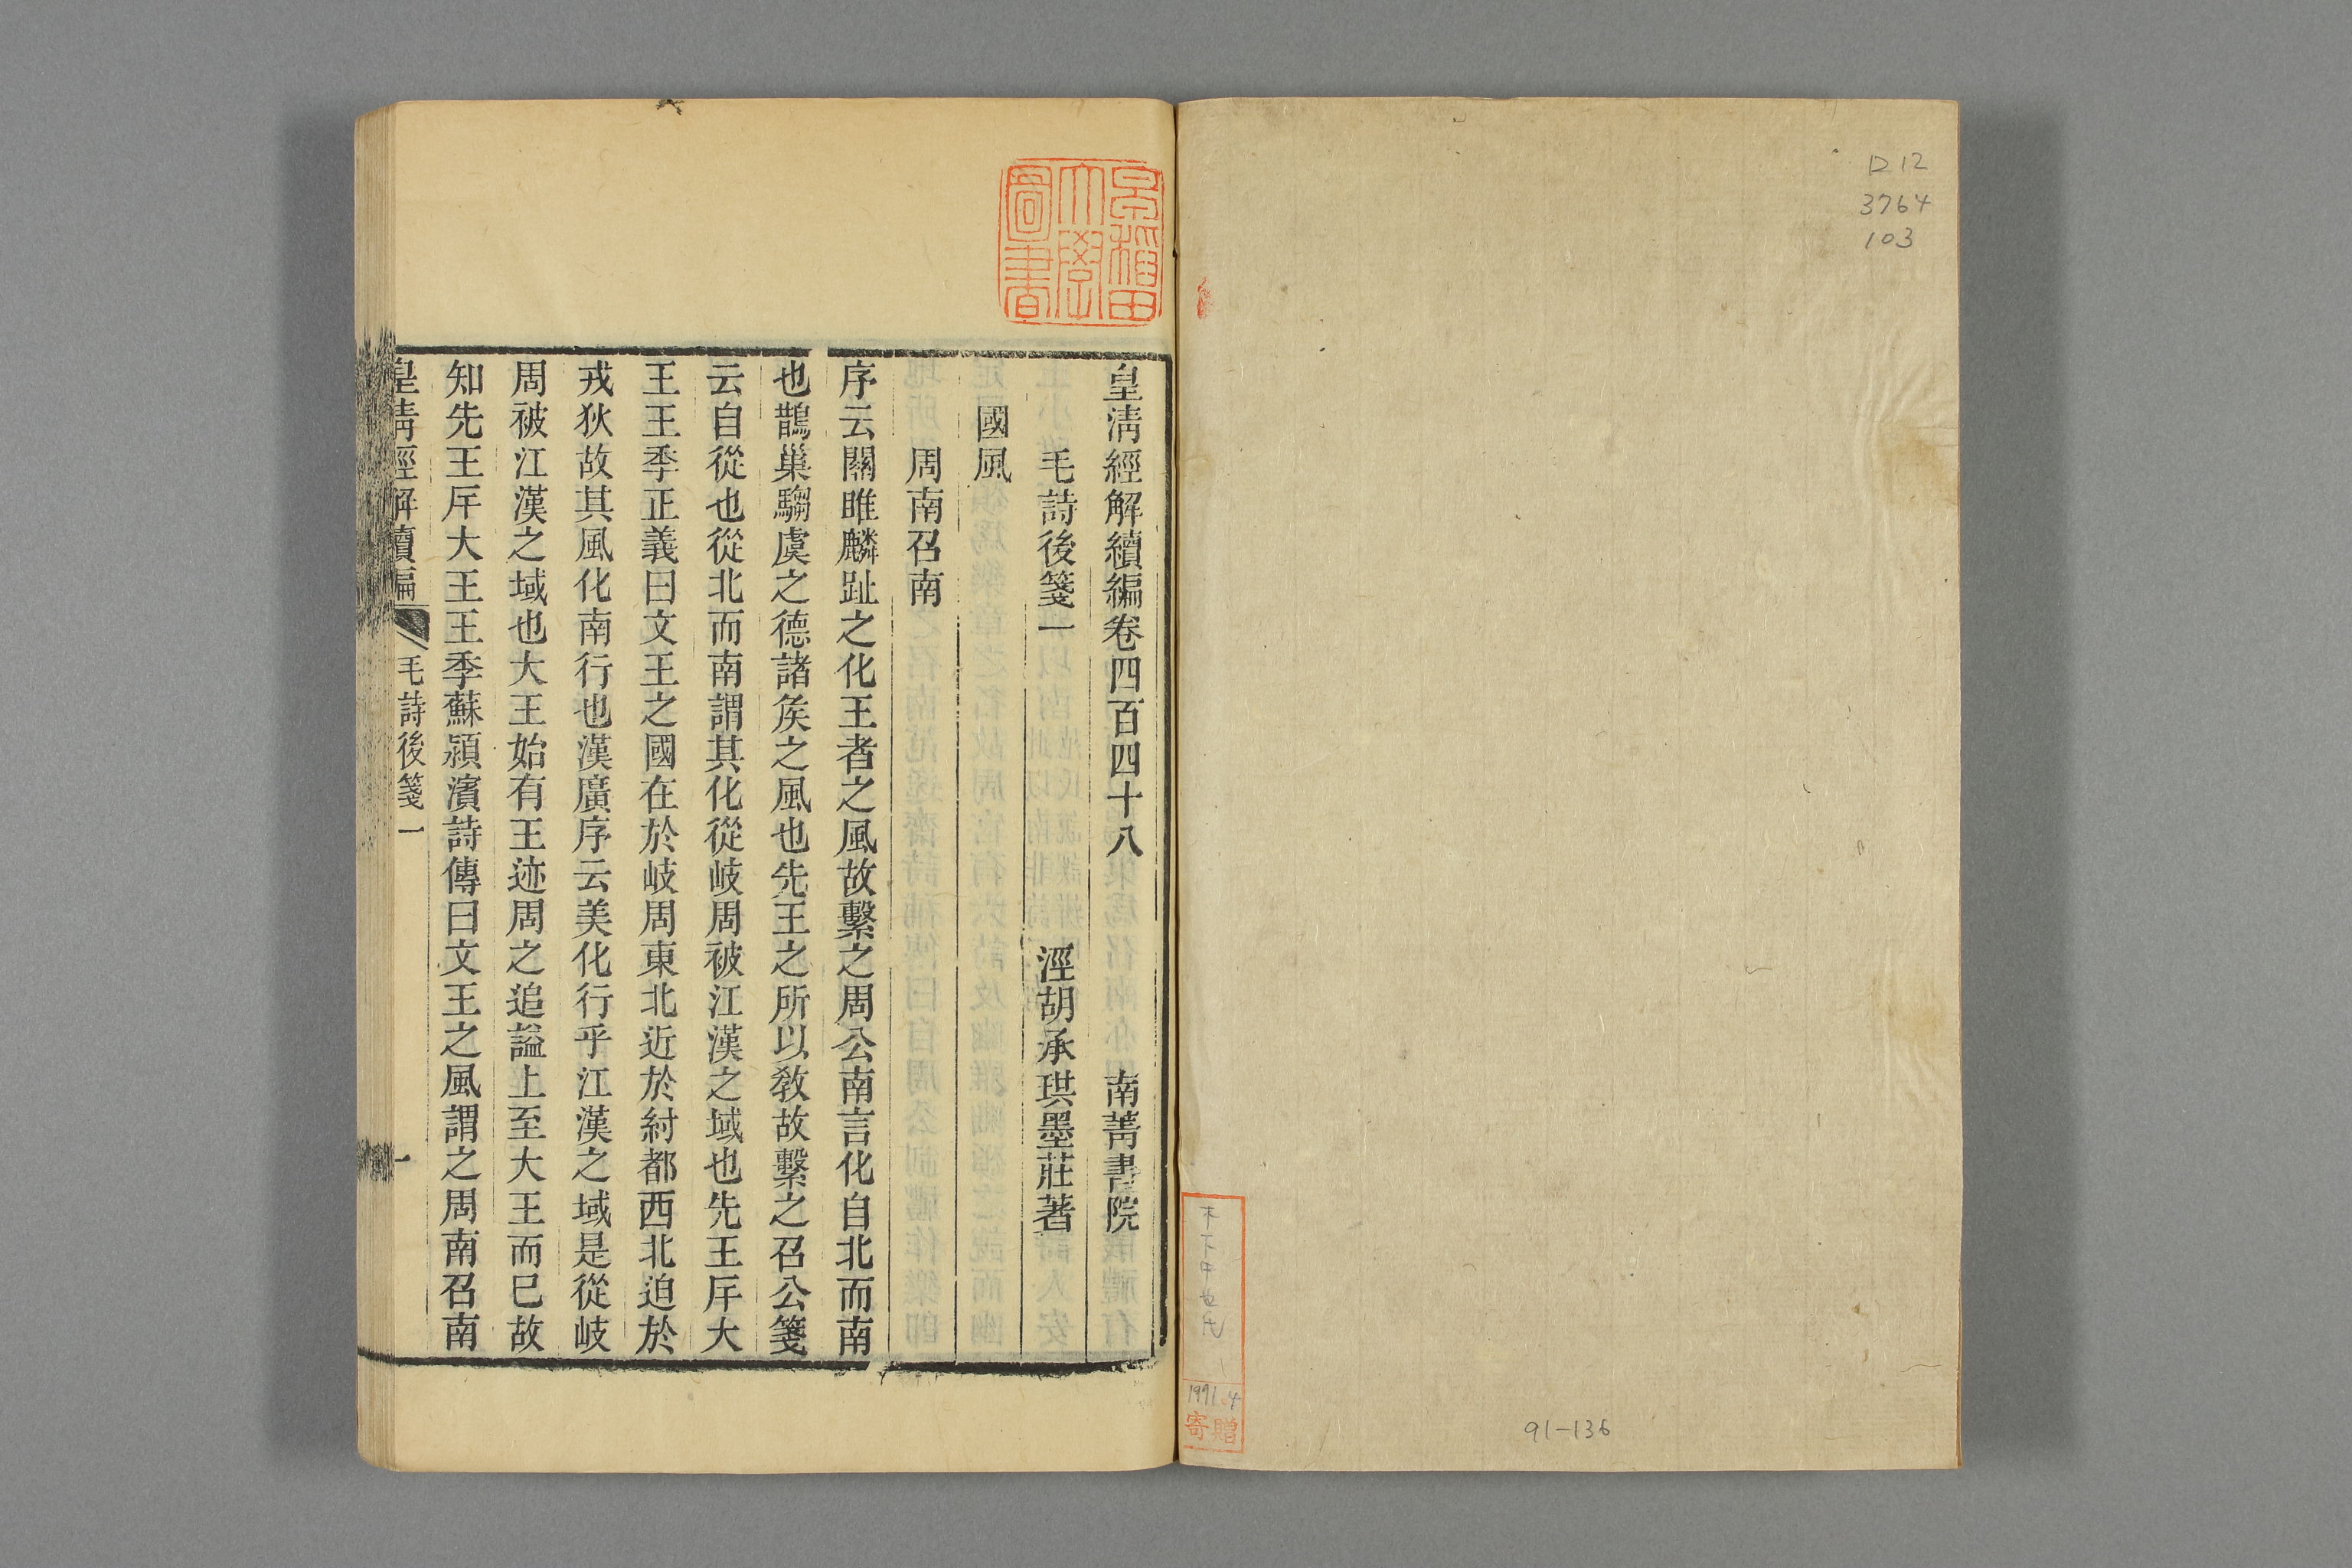 ロ12
3764
103
91-136
1971.4
寄贈
早稲田
大學
圖書
皇清經解續編卷四百四十八　南菁書院
毛詩後箋一　涇胡承珙墨莊著
國風
周南召南
序云關雎麟趾之化王者之風故繫之周公南言化自北而南
也鵲巢騶虞之德諸矦之風也先王之所以敎故繫之召公箋
云自從也從北而南謂其化從岐周被江漢之域也先王斥大
王王季正義曰文王之國在於岐周東北近於紂都西北迫於
戎狄故其風化南行也漢廣序云美化行乎江漢之域是從岐
周被江漢之域也大王始有王迹周之追謚上至大王而巳故
知先王斥大王王季蘇潁濱詩傳曰文王之風謂之周南召南
皇清經解續編　毛詩後箋一　一